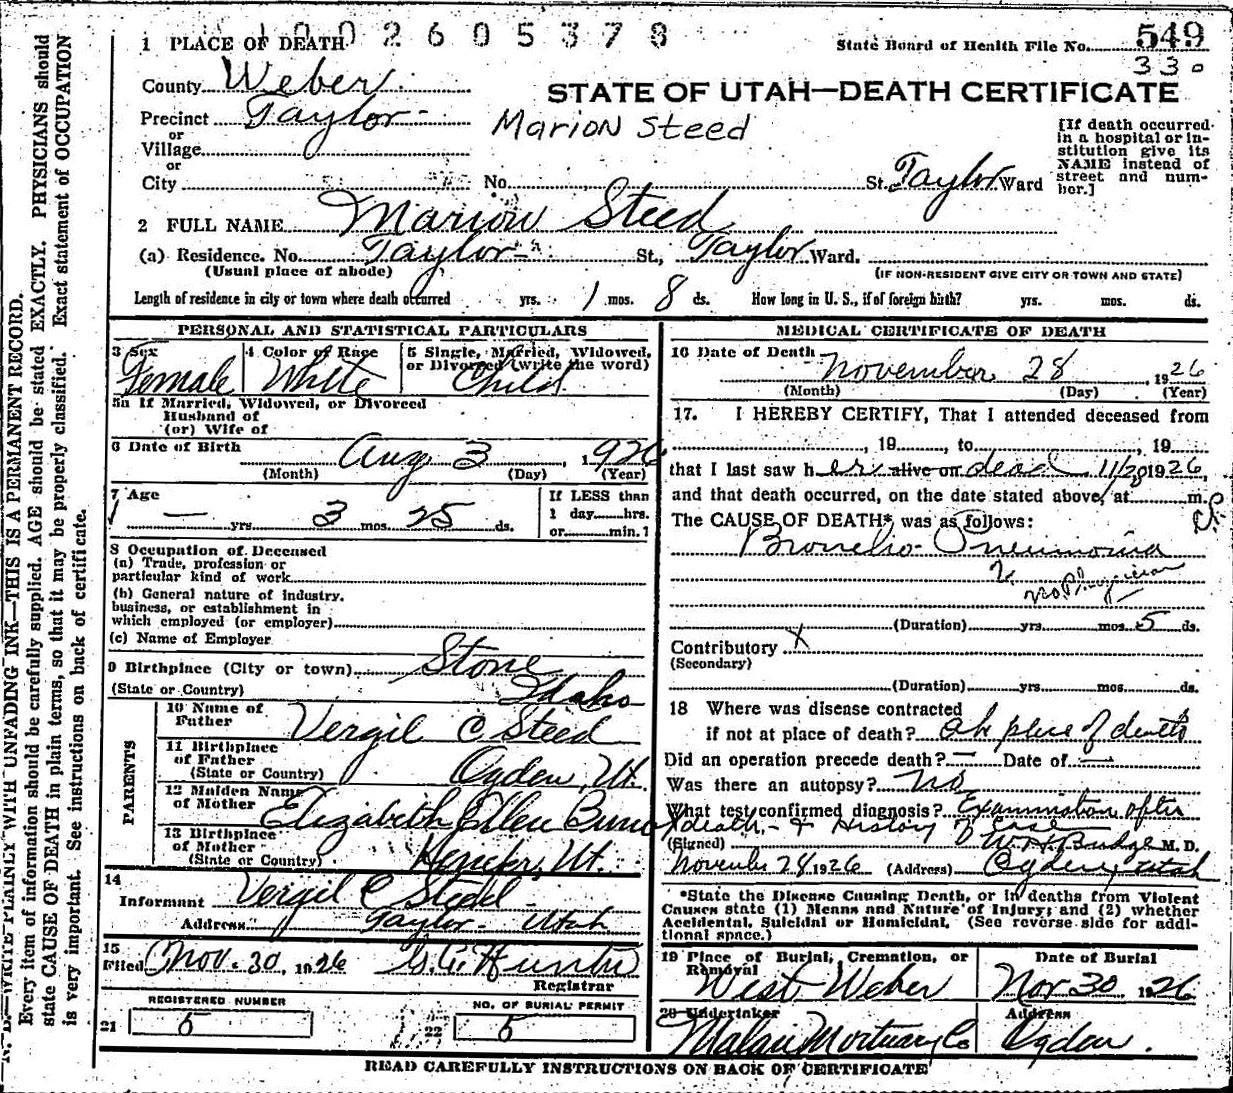 1002605378
1 PLACE OF DEATH
State Board of Health File No. 549
330
County Weber
STATE OF UTAH—DEATH CERTIFICATE
Precinct Taylor
Marion Steed
or
Village
or
City No. St. Taylor Ward
[If death occurred in a hospital or institution give its NAME instead of street and number.]
2 FULL NAME Marion Steed
(a) Residence. No. Taylor St., Taylor Ward.
(Usual place of abode)
(IF NON-RESIDENT GIVE CITY OR TOWN AND STATE)
Length of residence in city or town where death occurred yrs. 1 mos. 8 ds. How long in U. S., if of foreign birth? yrs. mos. ds.
PERSONAL AND STATISTICAL PARTICULARS
3 Sex 4 Color or Race 5 Single, Married, Widowed, or Divorced (write the word)
Female White Child
5a If Married, Widowed, or Divorced
Husband of
(or) Wife of
6 Date of Birth Aug 3, 1926
(Month) (Day) (Year)
7 Age
— yrs. 3 mos. 25 ds.
If LESS than
1 day......hrs.
or......min.1
8 Occupation of Deceased
(a) Trade, profession or
particular kind of work
(b) General nature of Industry,
business, or establishment in
which employed (or employer)
(c) Name of Employer
9 Birthplace (City or town) Stone
(State or Country) Idaho
PARENTS
10 Name of
Father Vergil C Steed
11 Birthplace
of Father
(State or Country) Ogden, Ut.
12 Maiden Name
of Mother Elizabeth Ellen
13 Birthplace
of Mother
(State or Country) Henefer, Ut.
14
Informant Vergil C Steed
Address Taylor - Utah
15
Filed Nov. 30, 1926
Registrar
REGISTERED NUMBER
21 5
NO. OF BURIAL PERMIT
22 5
MEDICAL CERTIFICATE OF DEATH
16 Date of Death November 28, 1926
(Month) (Day) (Year)
17. I HEREBY CERTIFY, That I attended deceased from
, 19......, to......, 19......
that I last saw her alive on dead 11/28 1926,
and that death occurred, on the date stated above, at......m.
The CAUSE OF DEATH* was as follows:
Broncho-Pneumonia
No Physician
(Duration) yrs. mos. 5 ds.
Contributory X
(Secondary)
(Duration) yrs. mos. ds.
18 Where was disease contracted
if not at place of death? at place of death
Did an operation precede death? — Date of —
Was there an autopsy? No
What test confirmed diagnosis? Examination after
death, - & History of Case
(Signed) M. D.
November 28, 1926 (Address) Ogden, Utah
*State the Disease Causing Death, or in deaths from Violent
Causes state (1) Menns and Nature of Injury; and (2) whether
Accidental, Suicidal or Homicidal. (See reverse side for addi-
tional space.)
19 Place of Burial, Cremation, or
Removal
West Weber
Date of Burial
Nov 30, 1926
20 Undertaker
Address
Mortuary Co Ogden.
READ CAREFULLY INSTRUCTIONS ON BACK OF CERTIFICATE
N. B.—WRITE PLAINLY WITH UNFADING INK—THIS IS A PERMANENT RECORD.
Every item of information should be carefully supplied. AGE should be stated EXACTLY. PHYSICIANS should
state CAUSE OF DEATH in plain terms, so that it may be properly classified. Exact statement of OCCUPATION
is very important. See instructions on back of certificate.